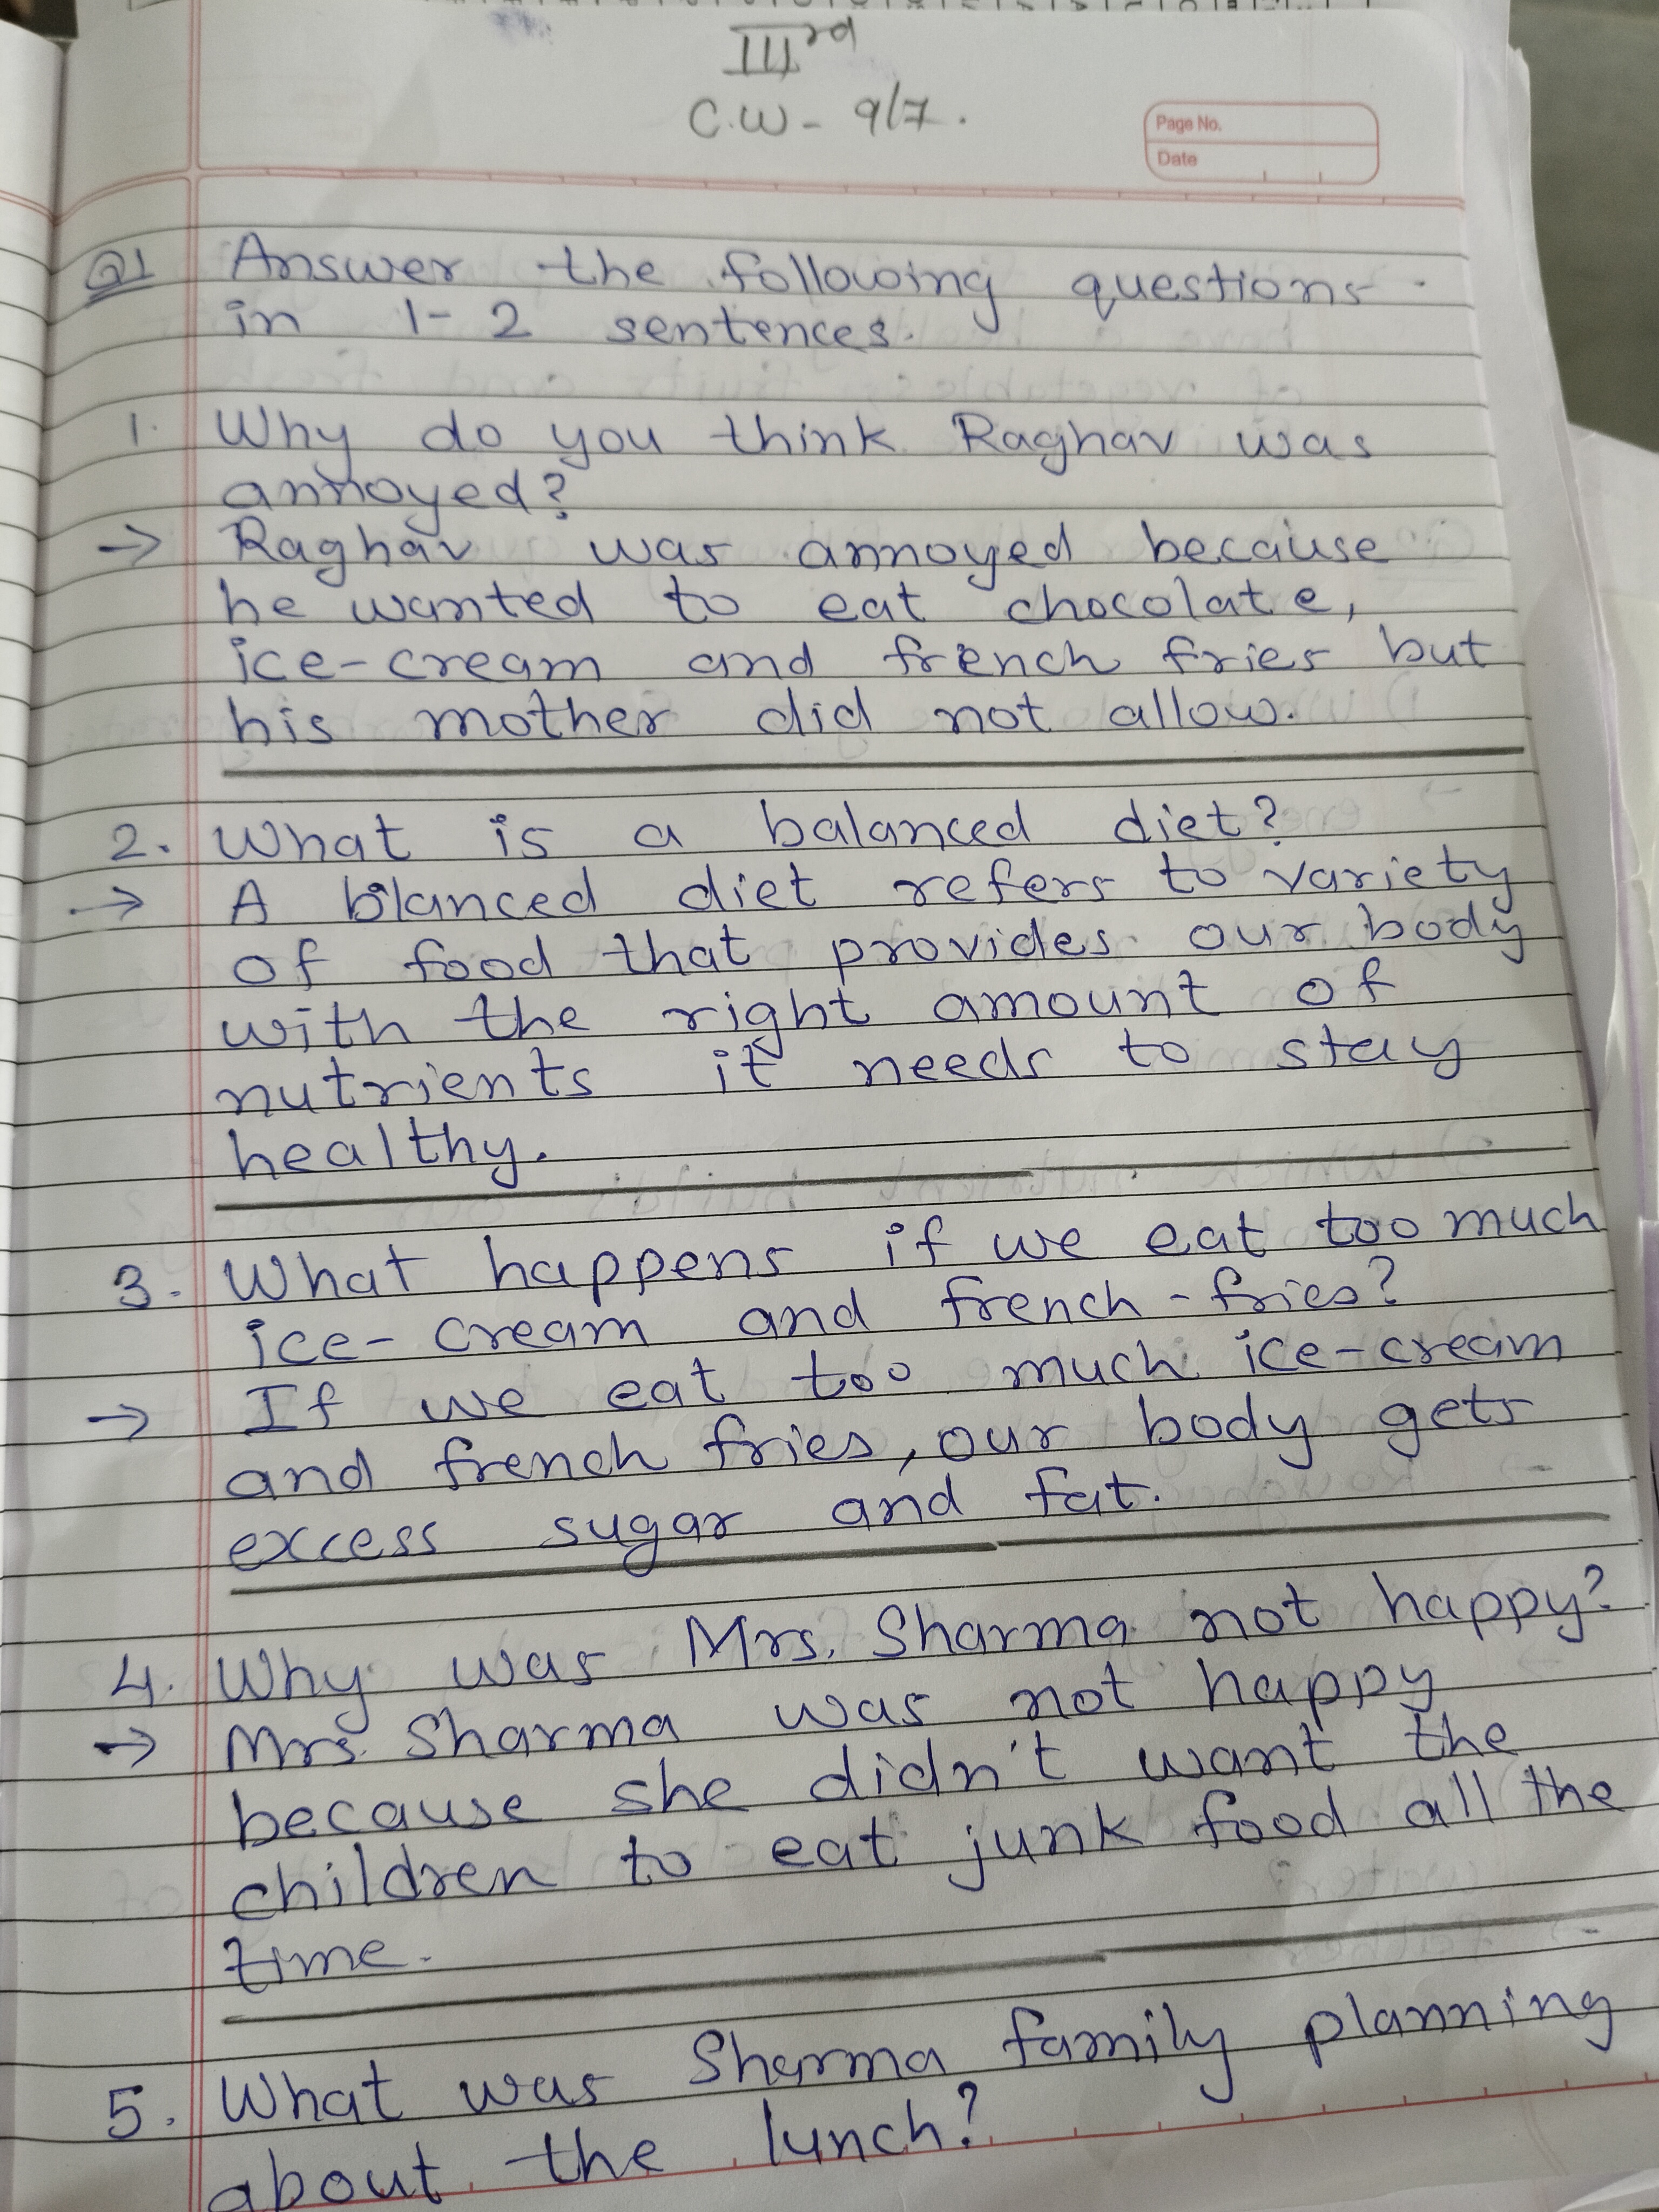 IIIrd
C.W - 9/7.
Page No.
Date
Q1 Answer the following questions
in 1-2 sentences.
1. Why do you think Raghav was
annoyed?
→ Raghav was annoyed because
he wanted to eat chocolate,
ice-cream and french fries but
his mother did not allow.
2. What is a balanced diet?
→ A blanced diet refers to variety
of food that provides our body
with the right amount of
nutrients it needs to stay
healthy.
3. What happens if we eat too much
ice-cream and french-fries?
→ If we eat too much ice-cream
and french fries, our body gets
excess sugar and fat.
4. Why was Mrs. Sharma not happy?
→ Mrs. Sharma was not happy
because she didn't want the
children to eat junk food all the
time.
5. What was Sharma family planning
about the lunch?